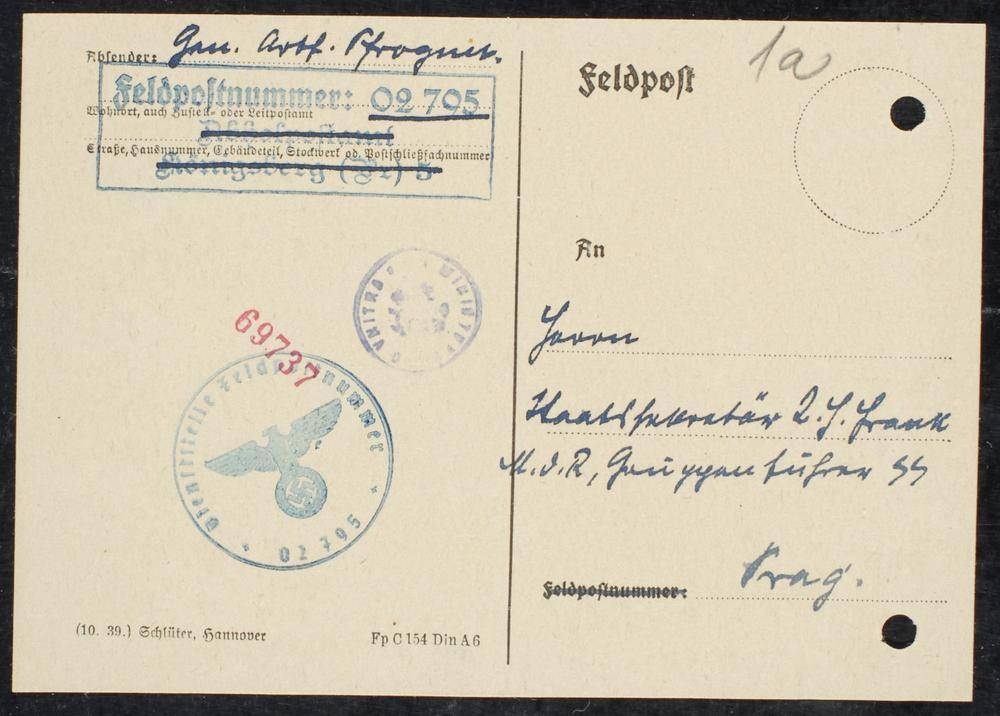 Absender: Gen. Arbf.
Feldpostnummer: 02 795
Wohnort, auch Zustell- oder Leitpostamt
Straße, Hausnummer, Gebäudeteil, Stockwerk od. Postschließfachnummer
Königsberg (Pr) 5
69737
Dienststelle Feldpostnummer
* 02 795 *
(10. 39.) Schlüter, Hannover
Fp C 154 Din A 6
1a
Feldpost
An
Herrn
Staatssekretär K. H. Frank
M.d.R, Gruppenführer SS
Feldpostnummer:
Prag.